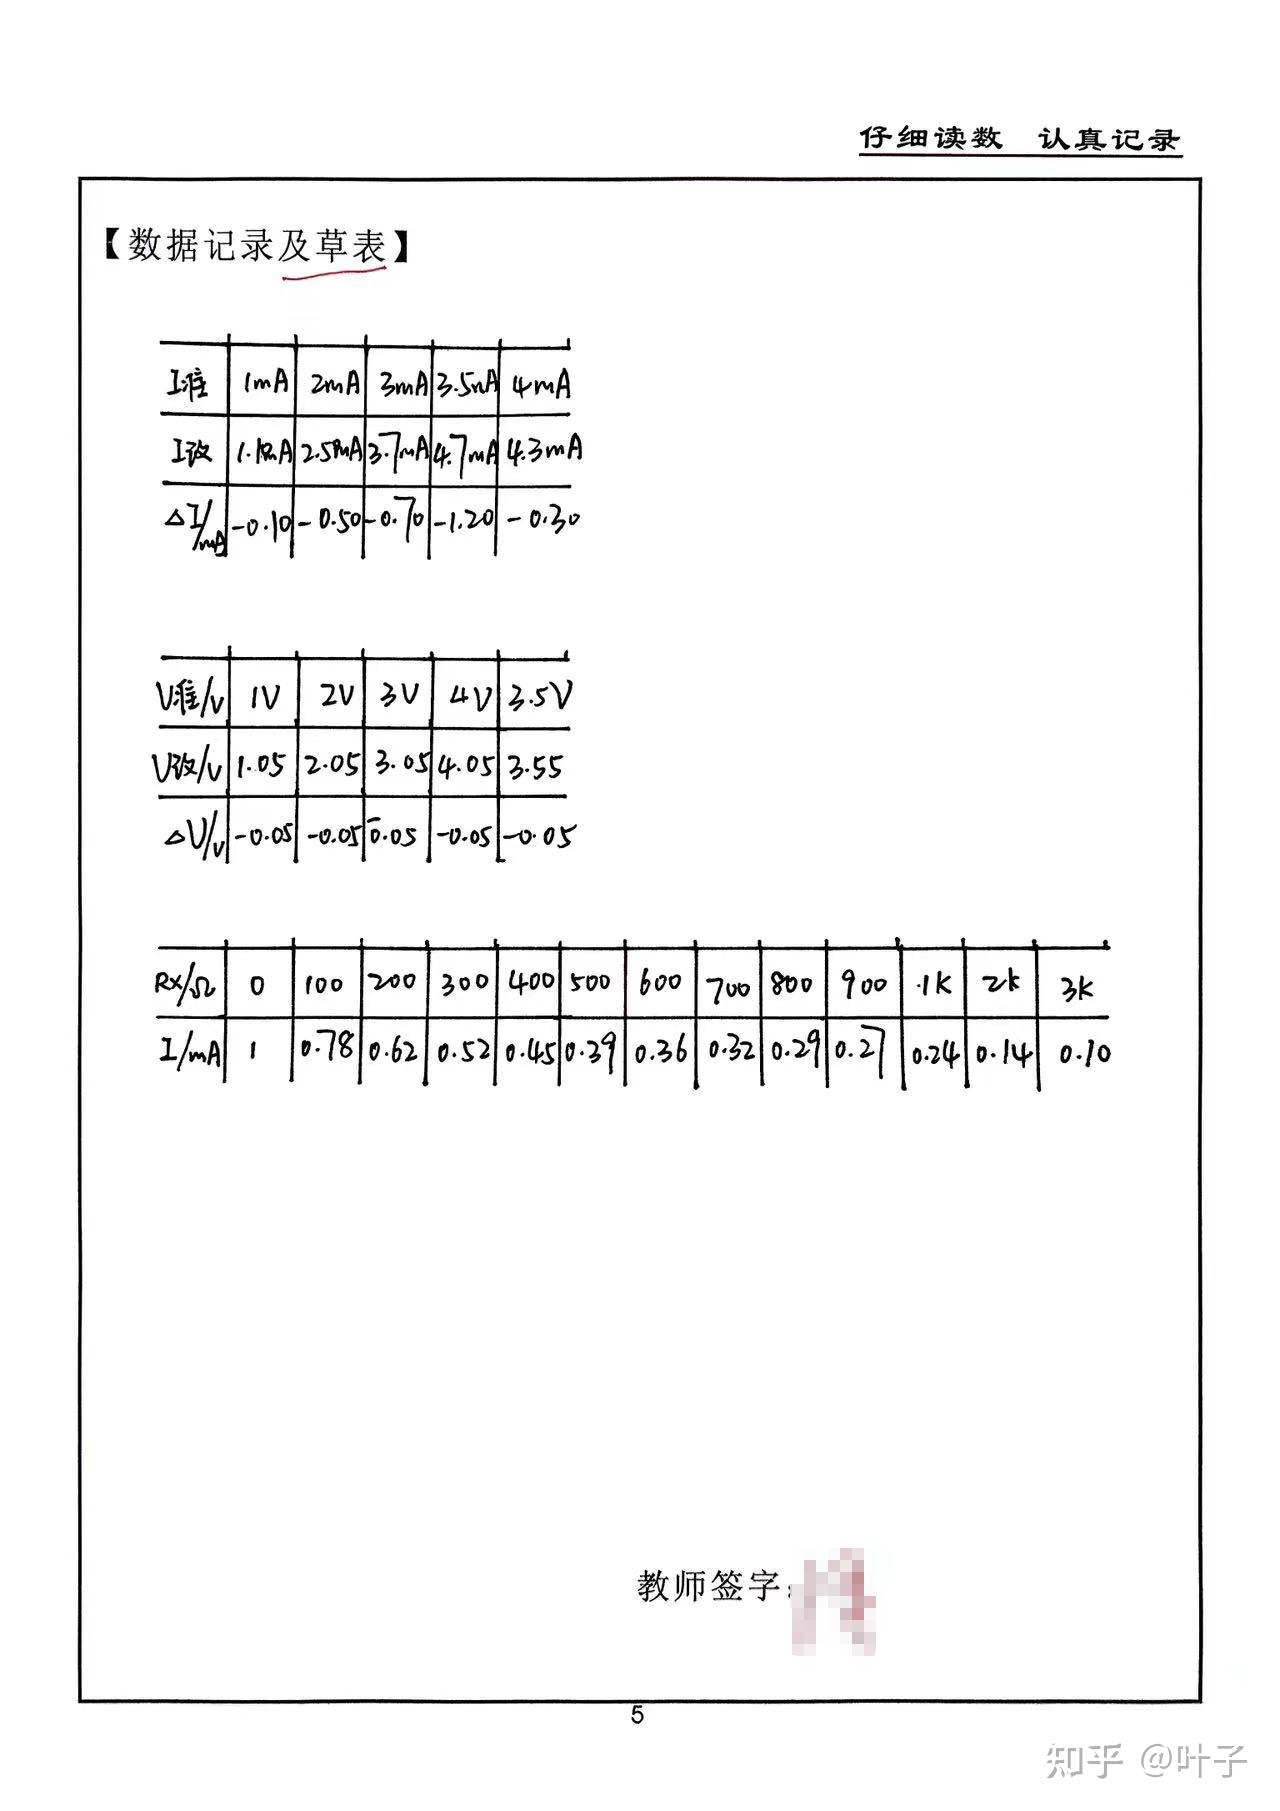 仔细读数 认真记录
【数据记录及草表】
I准 1mA 2mA 3mA 3.5mA 4mA
I改 1.1mA 2.5mA 3.7mA 4.7mA 4.3mA
△I/mA -0.10 -0.50 -0.70 -1.20 -0.30
V准/v 1V 2V 3V 4V 3.5V
V改/v 1.05 2.05 3.05 4.05 3.55
△V/v -0.05 -0.05 -0.05 -0.05 -0.05
Rx/Ω 0 100 200 300 400 500 600 700 800 900 1K 2K 3K
I/mA 1 0.78 0.62 0.52 0.45 0.39 0.36 0.32 0.29 0.27 0.24 0.14 0.10
教师签字:
5
知乎 @叶子